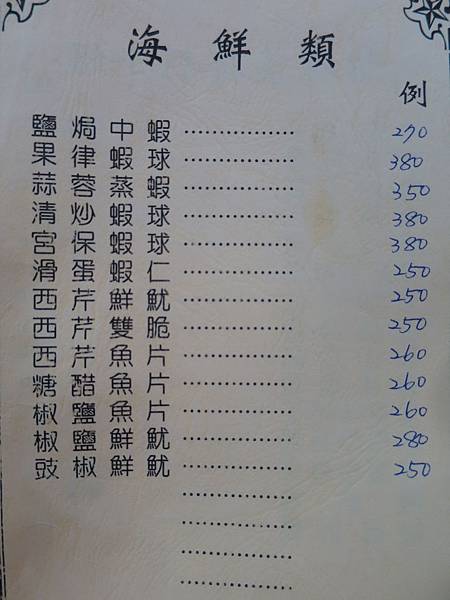 海鮮類
例
鹽焗中蝦 270
果律蝦球 380
蒜蓉蒸蝦 350
清炒蝦球 380
宮保蝦球 380
滑蛋蝦仁 250
西芹鮮魷 250
西芹雙脆 250
西芹魚片 260
糖醋魚片 260
椒鹽魚片 260
椒鹽鮮魷 280
豉椒鮮魷 250